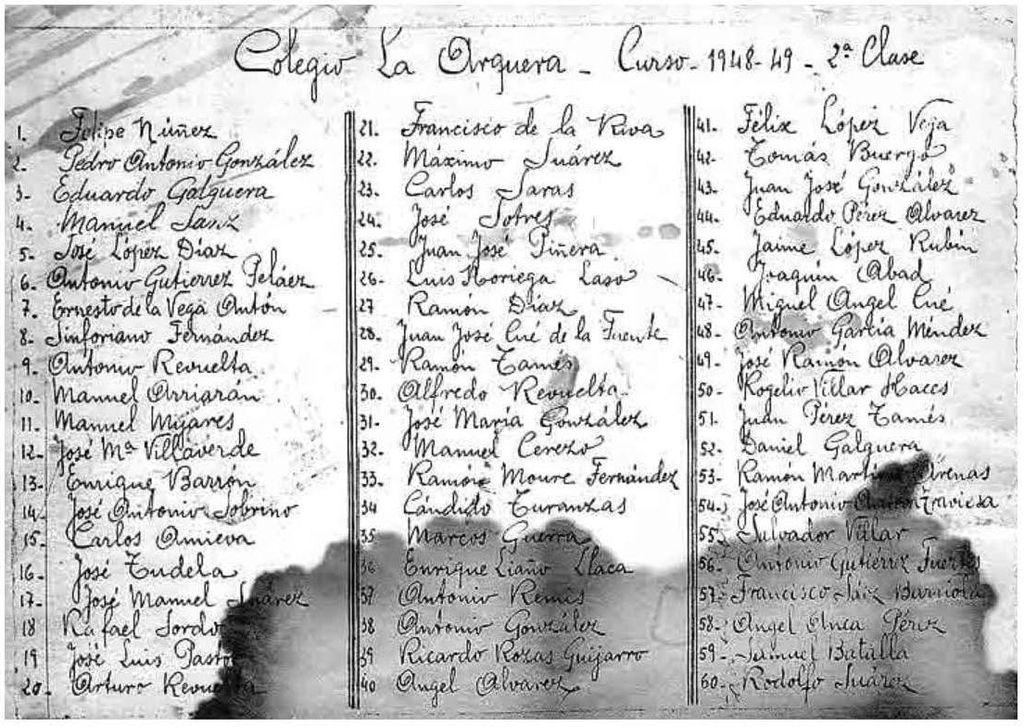 Colegio La Arquera - Curso - 1948-49 - 2ª Clase
1. Felipe Núñez
2. Pedro Antonio González
3. Eduardo Galguera
4. Manuel Sanz
5. José López Díaz
6. Antonio Gutierrez Peláez
7. Ernesto de la Vega Antón
8. Sinforiano Fernández
9. Antonio Revuelta
10. Manuel Arrigrán
11. Manuel Mijares
12. José Mª Villaverde
13. Enrique Barrón
14. José Antonio Sobrino
15. Carlos Amieva
16. José Tudela
17. José Manuel Suárez
18 Rafael Sordo
19 José Luis Pastor
20. Arturo Revuelta
21. Francisco de la Riva
22. Máximo Suárez
23. Carlos Saras
24. José Sotres
25. Juan José Piñera
26. Luis Noriega Laso
27 Ramón Díaz
28. Juan José Cué de la Fuente
29. Ramón Tamés
30. Alfredo Revuelta
31. José María González
32. Manuel Cerezo
33. Ramón Moure Fernández
34 Cándido Turanzas
35 Marcos Guerra
36 Enrique Liaño Llaca
37 Antonio Remis
38 Antonio González
39 Ricardo Rozas Guijarro
40 Angel Alvarez
41. Félix López Vega
42. Tomás Buergo
43. Juan José González
44. Eduardo Pérez Alvarez
45. Jaime López Rubín
46. Joaquín Abad
47. Miguel Angel Cué
48. Antonio García Méndez
49. José Ramón Alvarez
50. Rogelio Villar Haces
51. Juan Pérez Tamés
52. Daniel Galguera
53. Ramón Martínez Arenas
54. José Antonio Traviesa
55. Salvador Villar
56. Antonio Gutiérrez Fuertes
57. Francisco Sáiz
58. Angel Pérez
59. Samuel Batalla
60. Rodolfo Suárez